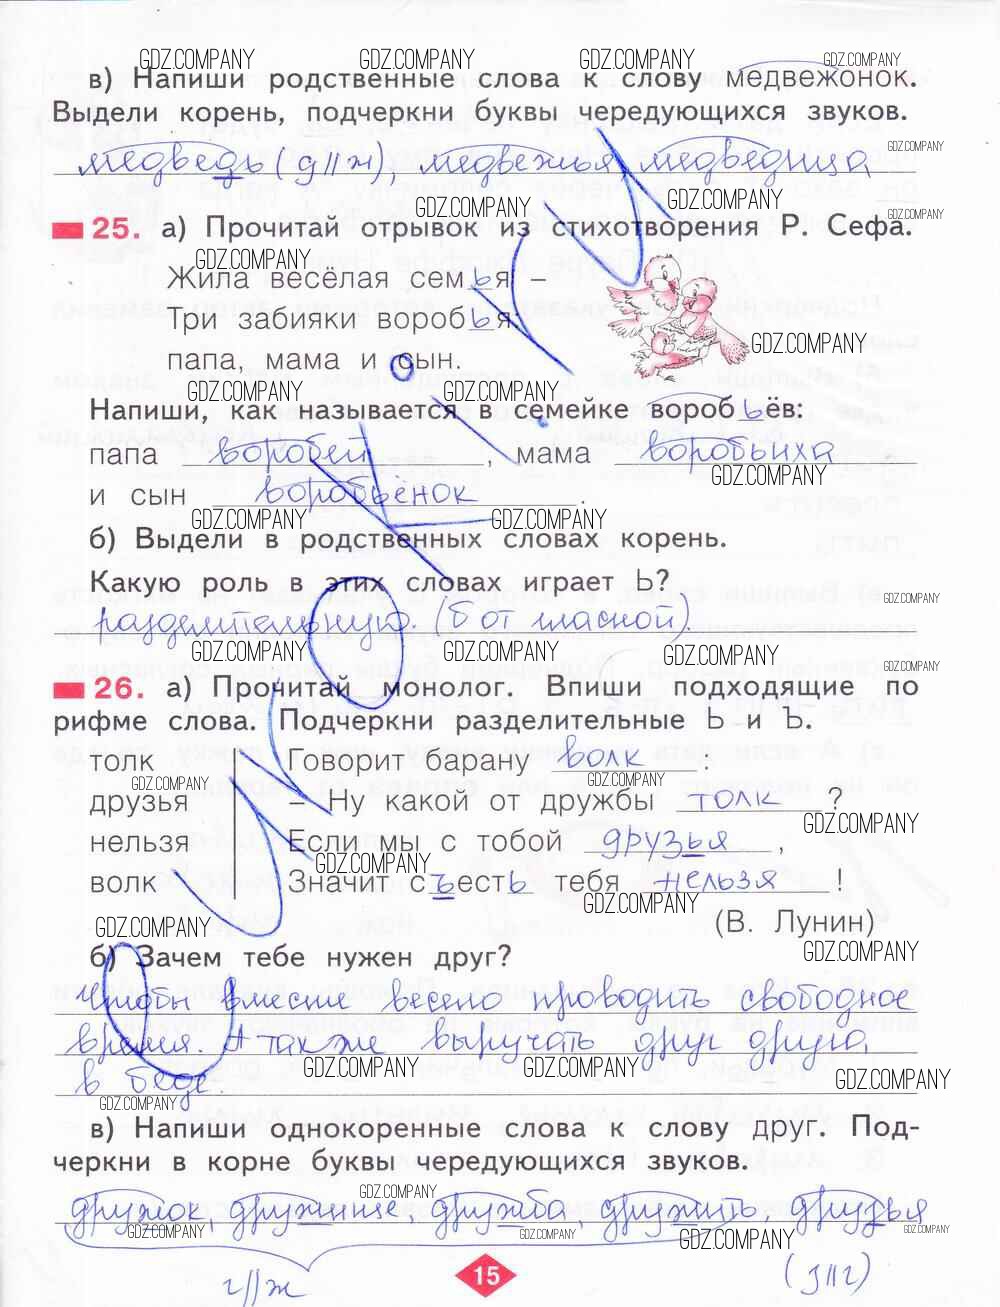 GDZ.COMPANY GDZ.COMPANY GDZ.COMPANY GDZ.COMPANY
в) Напиши родственные слова к слову медвежонок.
Выдели корень, подчеркни буквы чередующихся звуков.
GDZ.COMPANY
медведь (д//ж), медвежья, медведица
GDZ.COMPANY GDZ.COMPANY GDZ.COMPANY
25. а) Прочитай отрывок из стихотворения Р. Сефа.
GDZ.COMPANY
Жила весёлая семья –
Три забияки воробья:
папа, мама и сын.
GDZ.COMPANY
GDZ.COMPANY GDZ.COMPANY
Напиши, как называется в семейке воробьёв:
папа воробей, мама воробьиха
GDZ.COMPANY
и сын воробьёнок.
GDZ.COMPANY GDZ.COMPANY
б) Выдели в родственных словах корень.
Какую роль в этих словах играет Ь?
GDZ.COMPANY
разделительную. (б от гласной)
GDZ.COMPANY GDZ.COMPANY GDZ.COMPANY GDZ.COMPANY
26. а) Прочитай монолог. Впиши подходящие по
рифме слова. Подчеркни разделительные Ь и Ъ.
толк Говорит барану волк :
GDZ.COMPANY GDZ.COMPANY
друзья – Ну какой от дружбы толк ?
GDZ.COMPANY
нельзя Если мы с тобой друзья ,
GDZ.COMPANY
волк Значит съесть тебя нельзя !
GDZ.COMPANY
GDZ.COMPANY (В. Лунин)
GDZ.COMPANY
б) Зачем тебе нужен друг?
Чтобы вместе весело проводить свободное
время. А также выручать друг друга
GDZ.COMPANY GDZ.COMPANY GDZ.COMPANY
в беде.
GDZ.COMPANY
в) Напиши однокоренные слова к слову друг. Под-
черкни в корне буквы чередующихся звуков.
GDZ.COMPANY
дружок, дружище, дружба, дружить, друзья
GDZ.COMPANY GDZ.COMPANY GDZ.COMPANY GDZ.COMPANY
г//ж 15 (з//г)